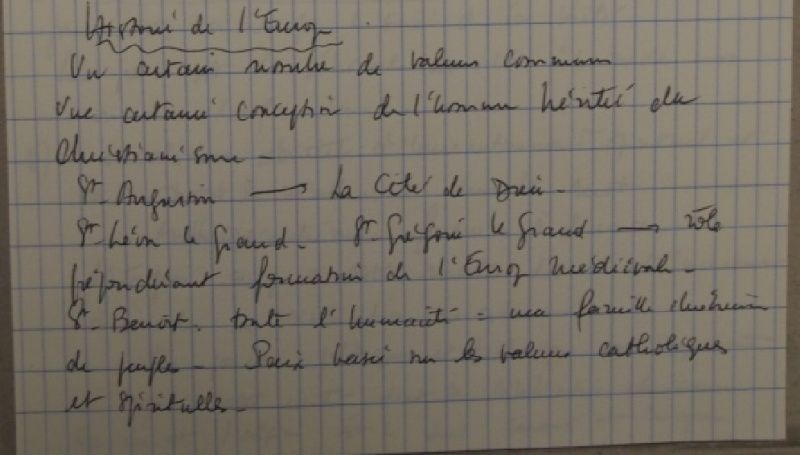 Histoire de l'Europe
Un certain nombre de valeurs communes
Une certaine conception de l'homme hérité du
Christianisme -
St Augustin → La Cité de Dieu -
St Léon le Grand - St Grégoire le Grand → rôle
prépondérant formation de l'Europe médiévale -
St Benoît. toute l'humanité = une famille chrétienne
de peuples - Paix basée sur les valeurs catholiques
et spirituelles -